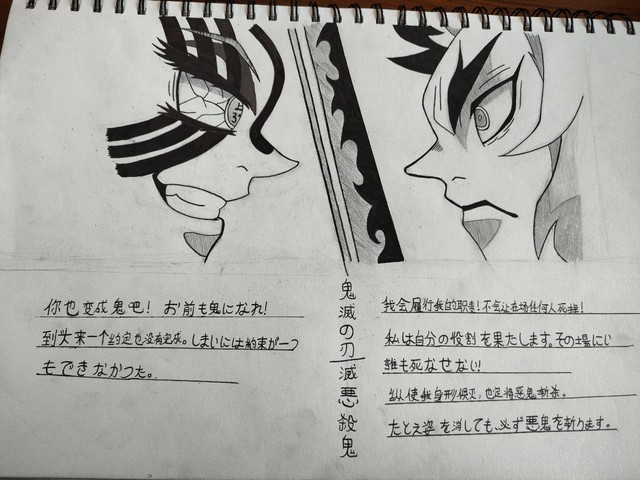 上
3
你也变成鬼吧! お前も鬼になれ!
到头来一个约定也没有完成。しまいには約束が一つ
もできなかつた。
鬼滅の刃 滅悪殺鬼
我会履行我的职责!不会让在场任何人死掉!
私は自分の役割を果たします。その場にじ
誰も死なせない!
纵使我身形俱灭,也定将恶鬼斩杀。
たとえ姿を消しても、必ず悪鬼を斬ります。